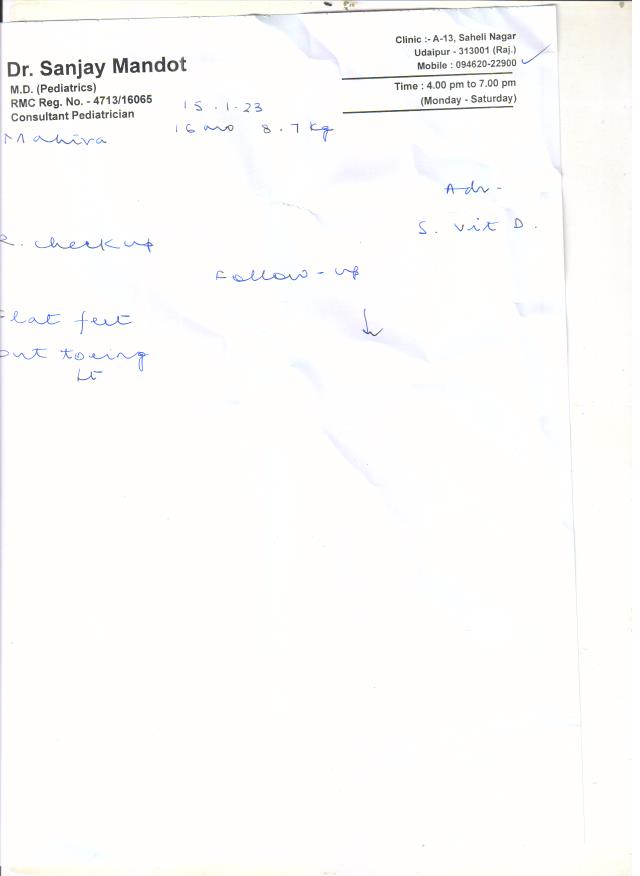 Dr. Sanjay Mandot
M.D. (Pediatrics)
RMC Reg. No. - 4713/16065
Consultant Pediatrician
Clinic :- A-13, Saheli Nagar
Udaipur - 313001 (Raj.)
Mobile : 094620-22900
Time : 4.00 pm to 7.00 pm
(Monday - Saturday)
15.1.23
16 mo 8.7 kg
Mahira
Adv -
S. Vit D.
R. check up
Follow-up
Flat feet
out toeing
Lt